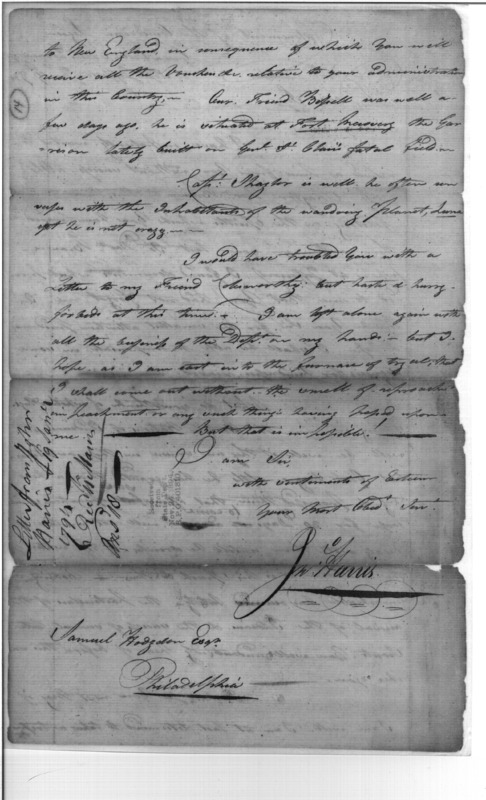 14
to New England in consequence of which You will
receive all the Vouchers relative to your administration
in this Country.— Our Friend Bissell was well a
few days ago, he is situated at Fort Recovery the Gar
rison lately built on Genl. St. Clair's fatal Field.—
Capt. Shaylor is well he often con
verses with the Inhabitants of the wandering Planet, Luna
yet he is not crazy—
I would have troubled You with a
Letter to my Friend but haste & hurry
forbids at this time.— I am left alone again with
all the business of the Dept. on my hands:— but I
hope as I am cast into the furnace of tryals, that
I shall come out without the smell of reproach
impeachment or any such thing's having upon
me— But that is impossible.—
I am Sir
with sentiments of Esteem
Your Most Obedt. Servt.
Jno. Harris
Samuel Hodgdon Esqr.
Philadelphia
Letter from John
Harris 19
1794